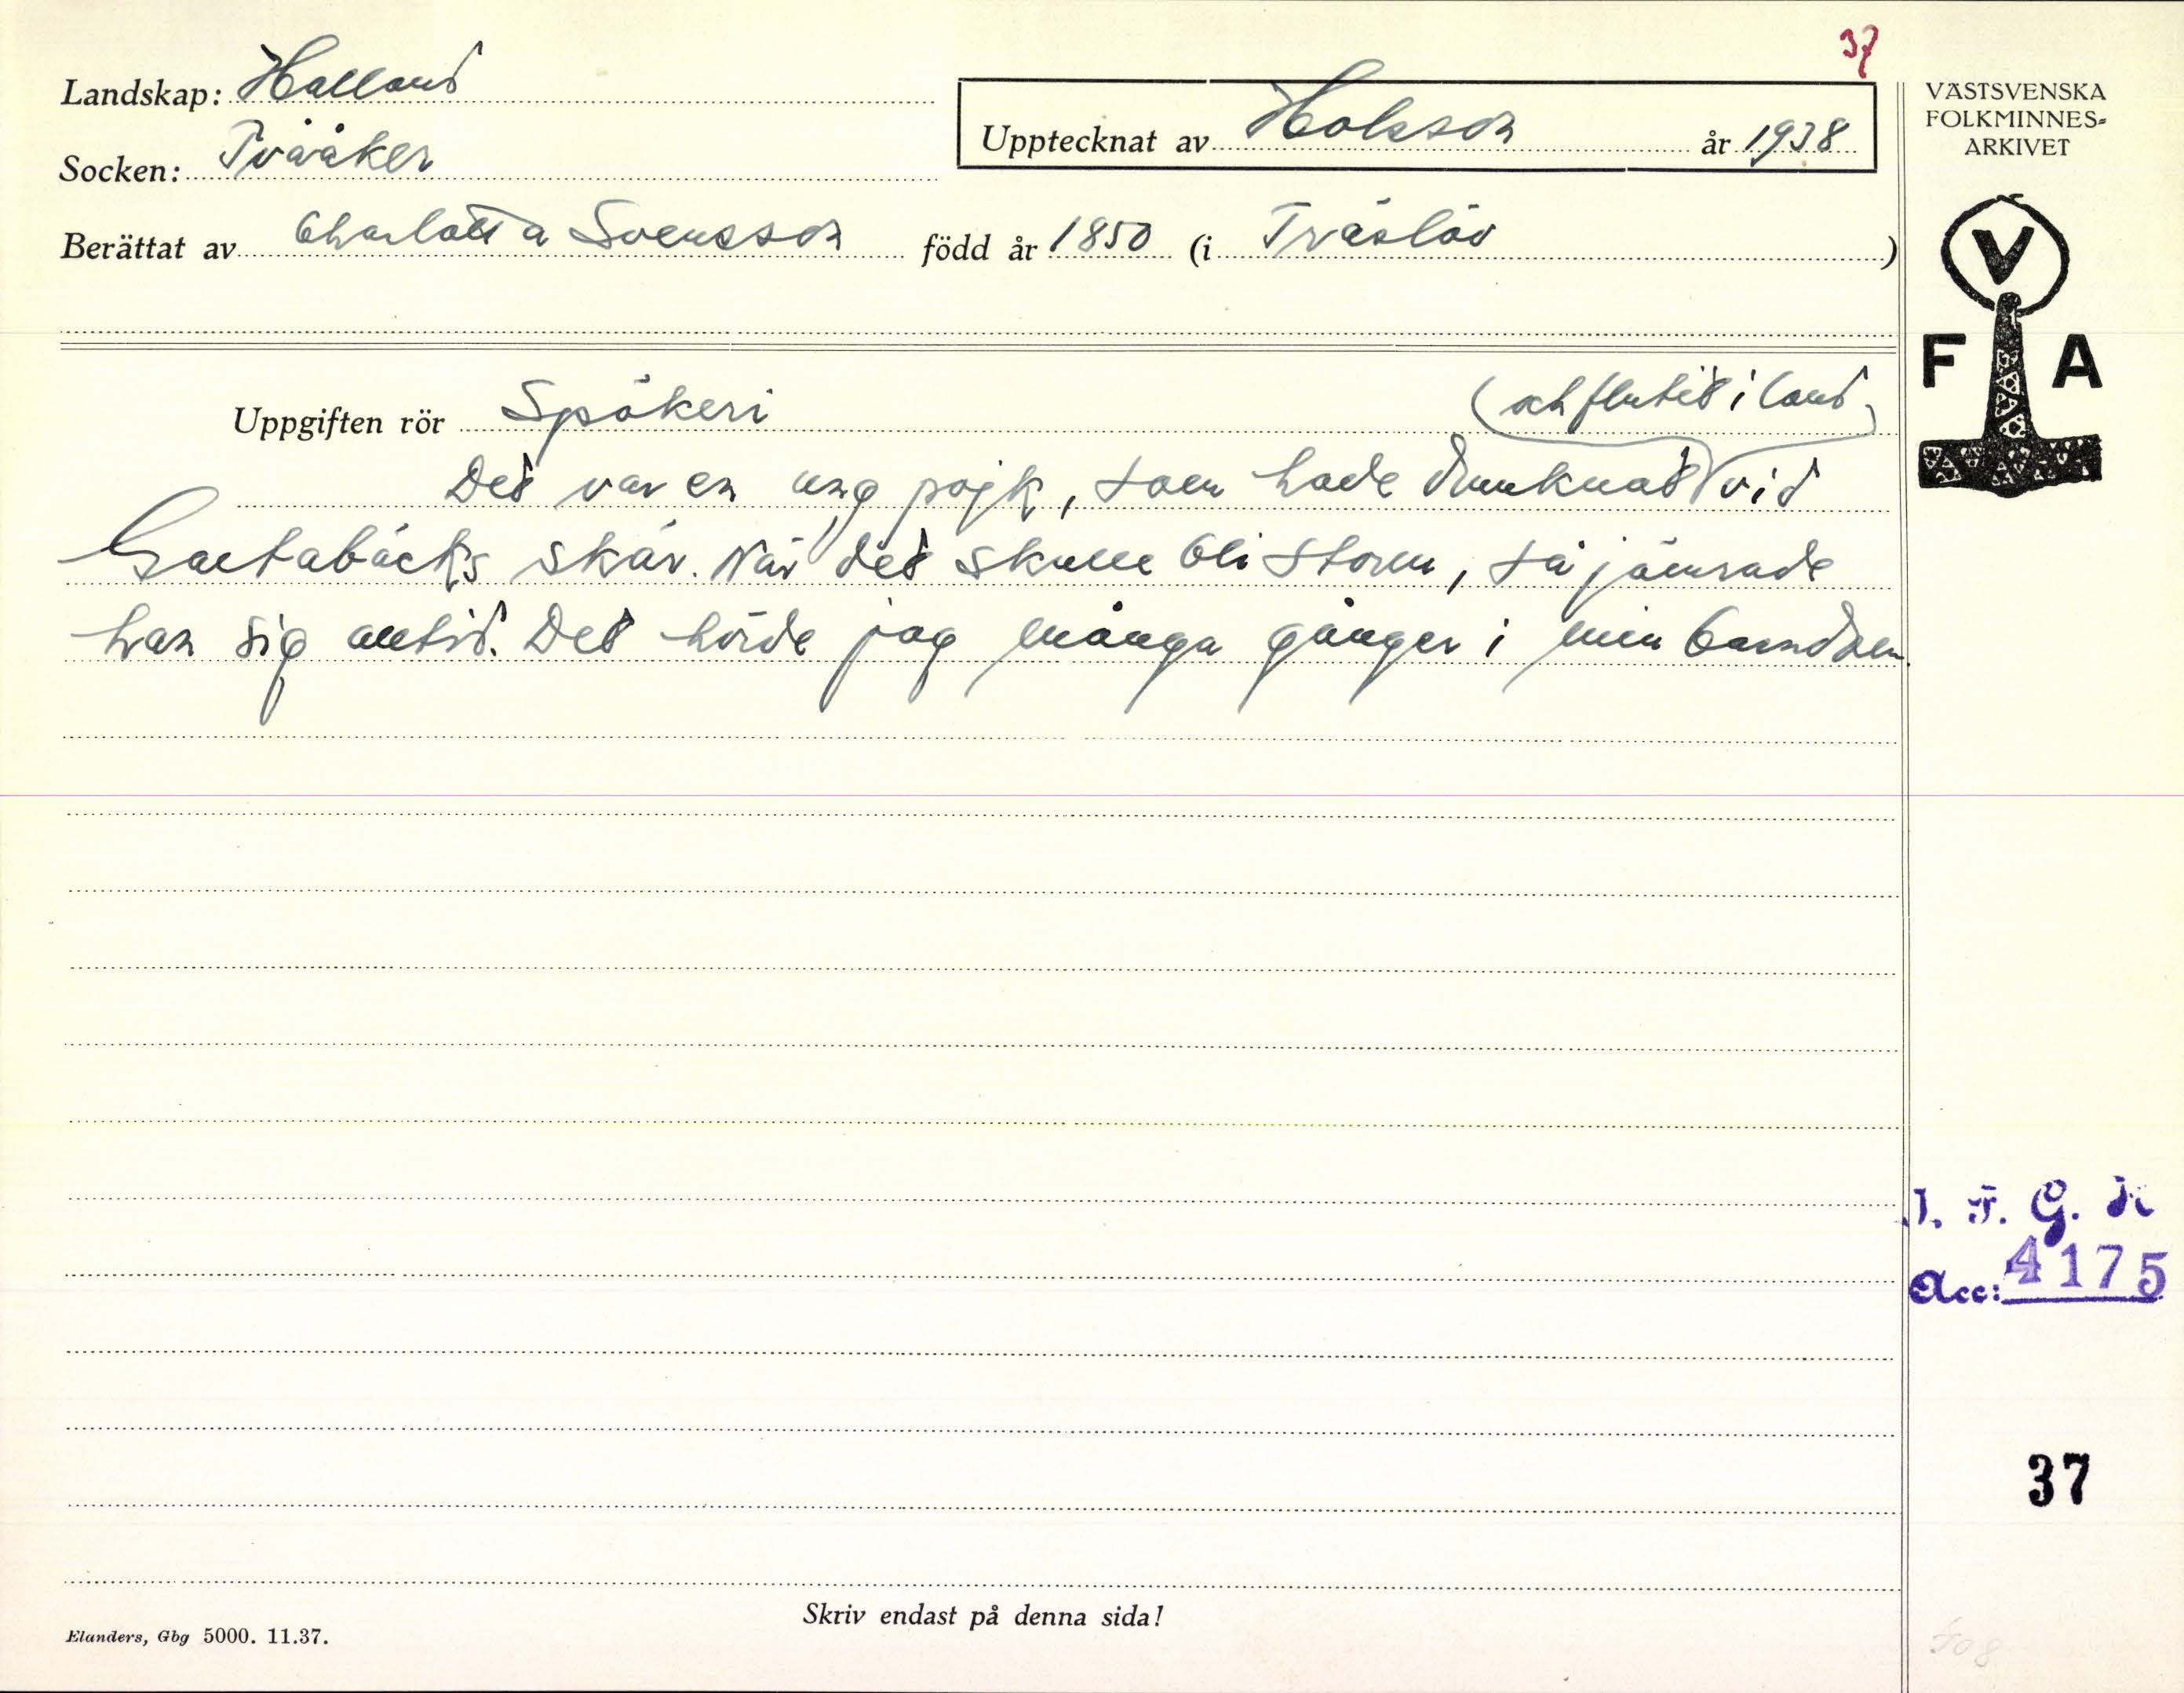 37
Landskap: Halland
Socken: Tvååker
Upptecknat av Holsson år 1938
Berättat av Charlotta Svensson född år 1850 (i Träslöv)
VÄSTSVENSKA
FOLKMINNES=
ARKIVET
V
F A
Uppgiften rör Spökeri
(och flutit i land)
Det var en ung pojk, som hade drunknat vid
Galtabäcks skär. När det skulle bli storm, så jämrade
han sig alltid. Det hörde jag många gånger i min barndom.
I. F. G. H
Acc: 4175
37
Skriv endast på denna sida!
Elanders, Gbg 5000. 11.37.
508